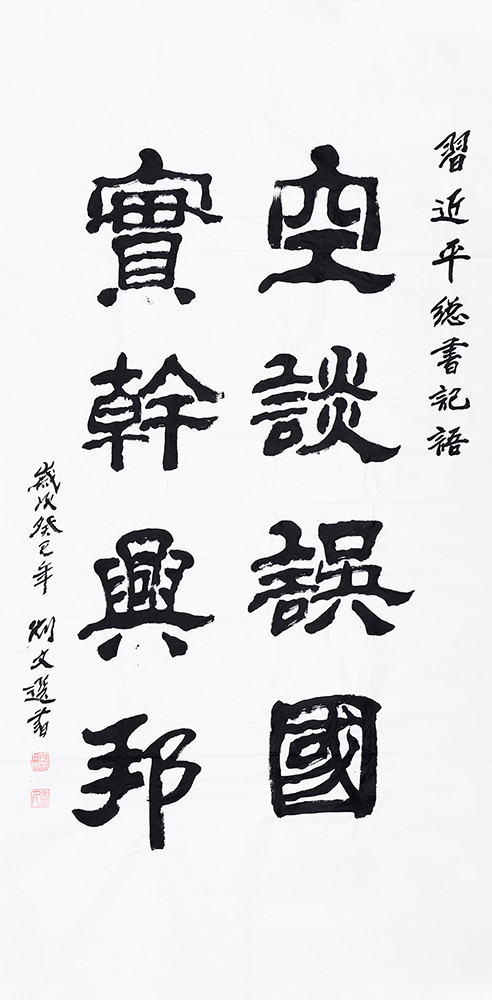 習近平總書記語
空談誤國
實幹興邦
歲次癸巳年 刘文選書